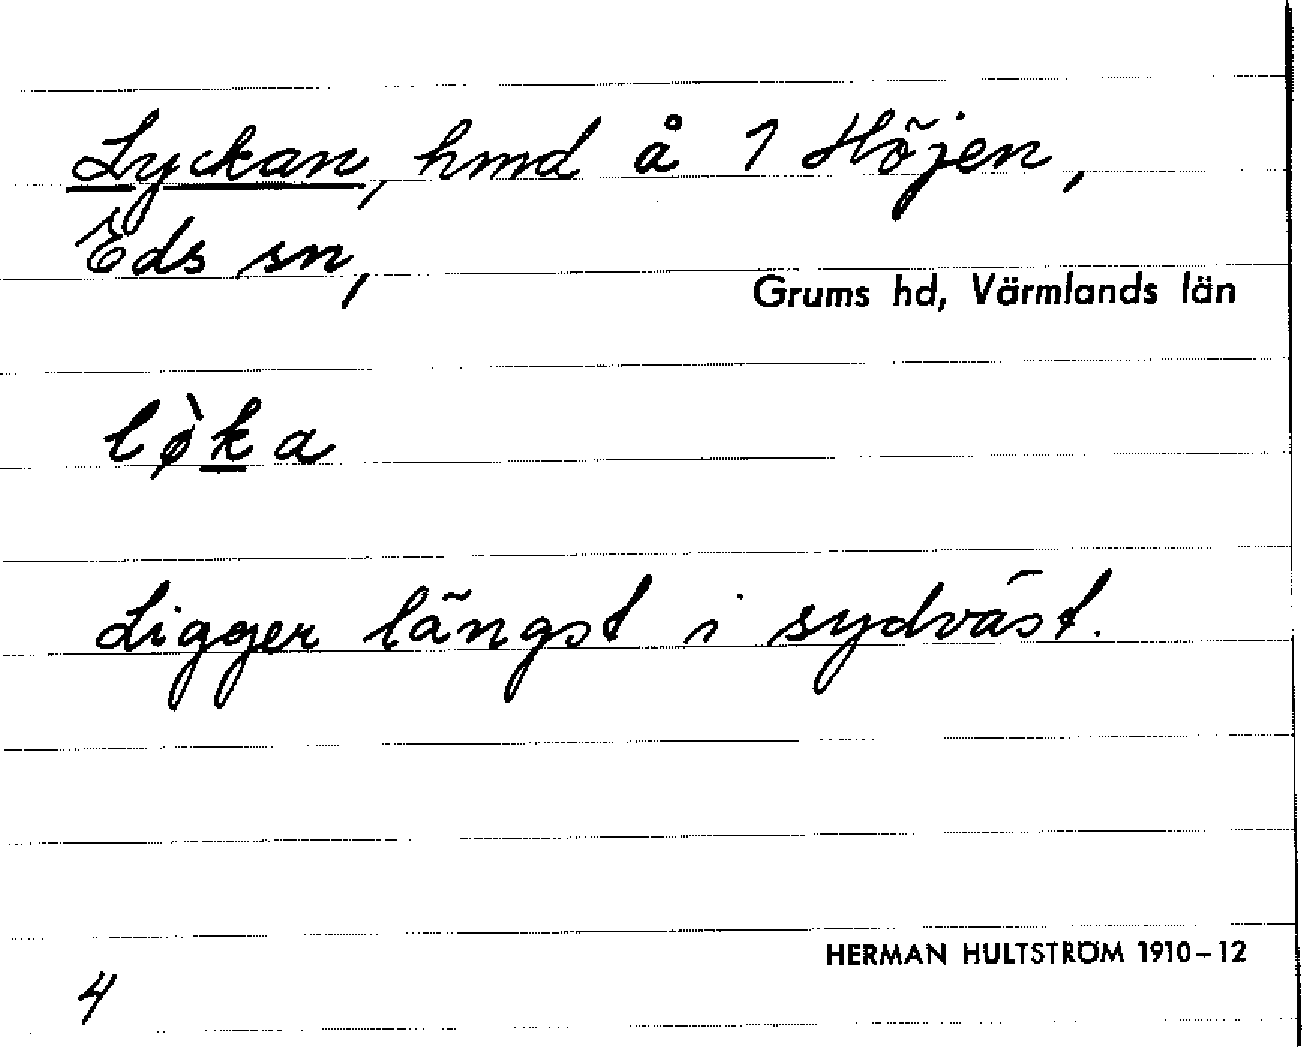 Lyckan, hmd å 1 Höjen,
Eds sn,
Grums hd, Värmlands län
lø̀ka
Ligger längst i sydväst.
HERMAN HULTSTRÖM 1910–12
4